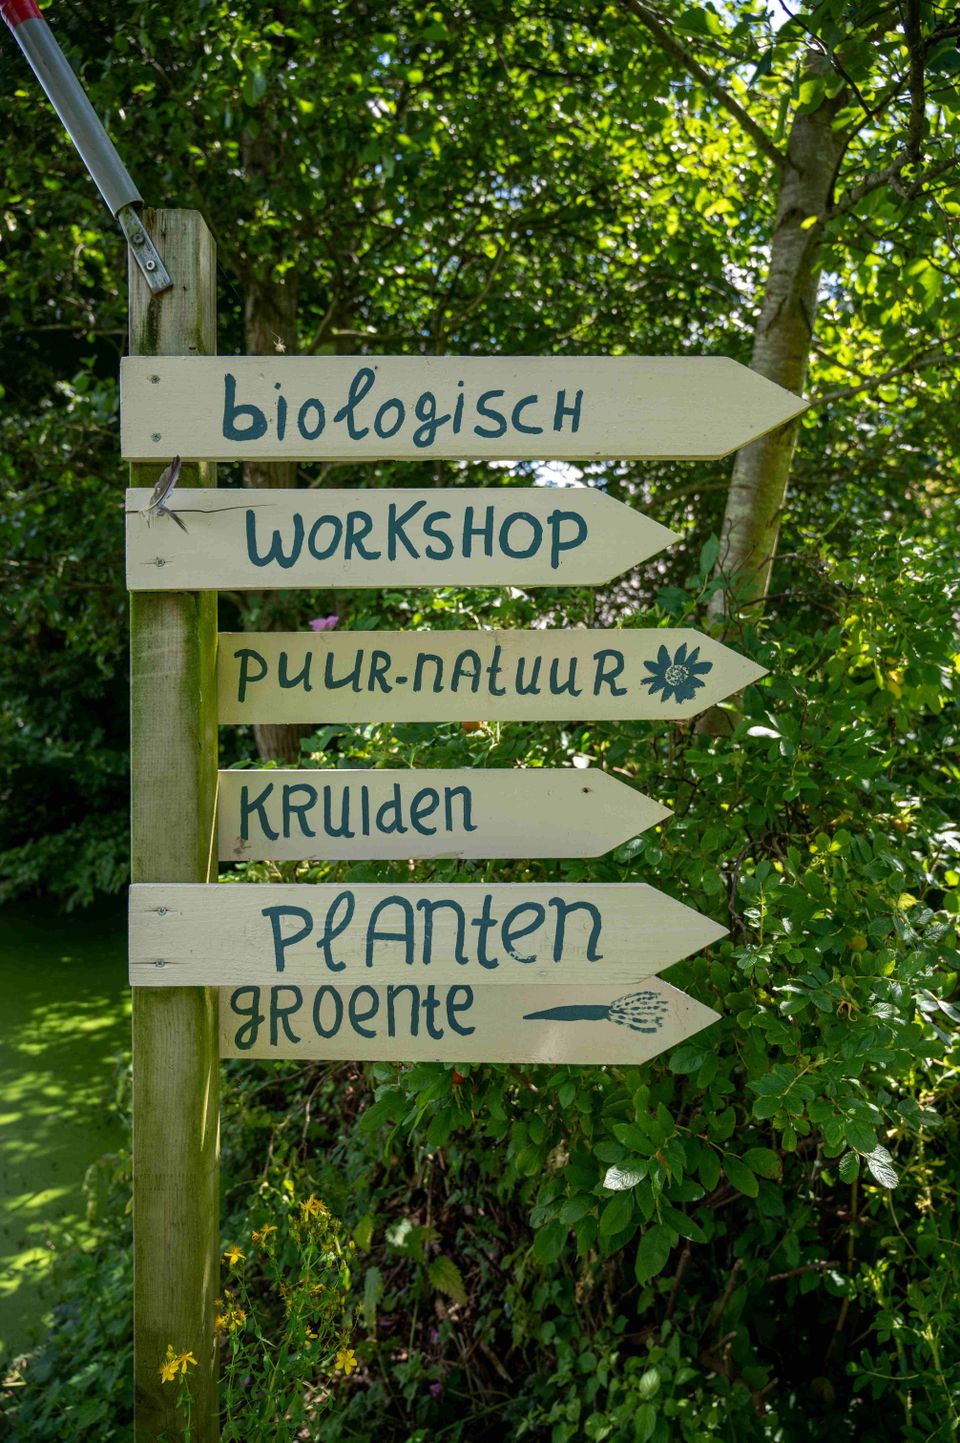 biologisch
WORKSHOP
PUUR-nAtuuR
KRUIden
PlAnten
gROente